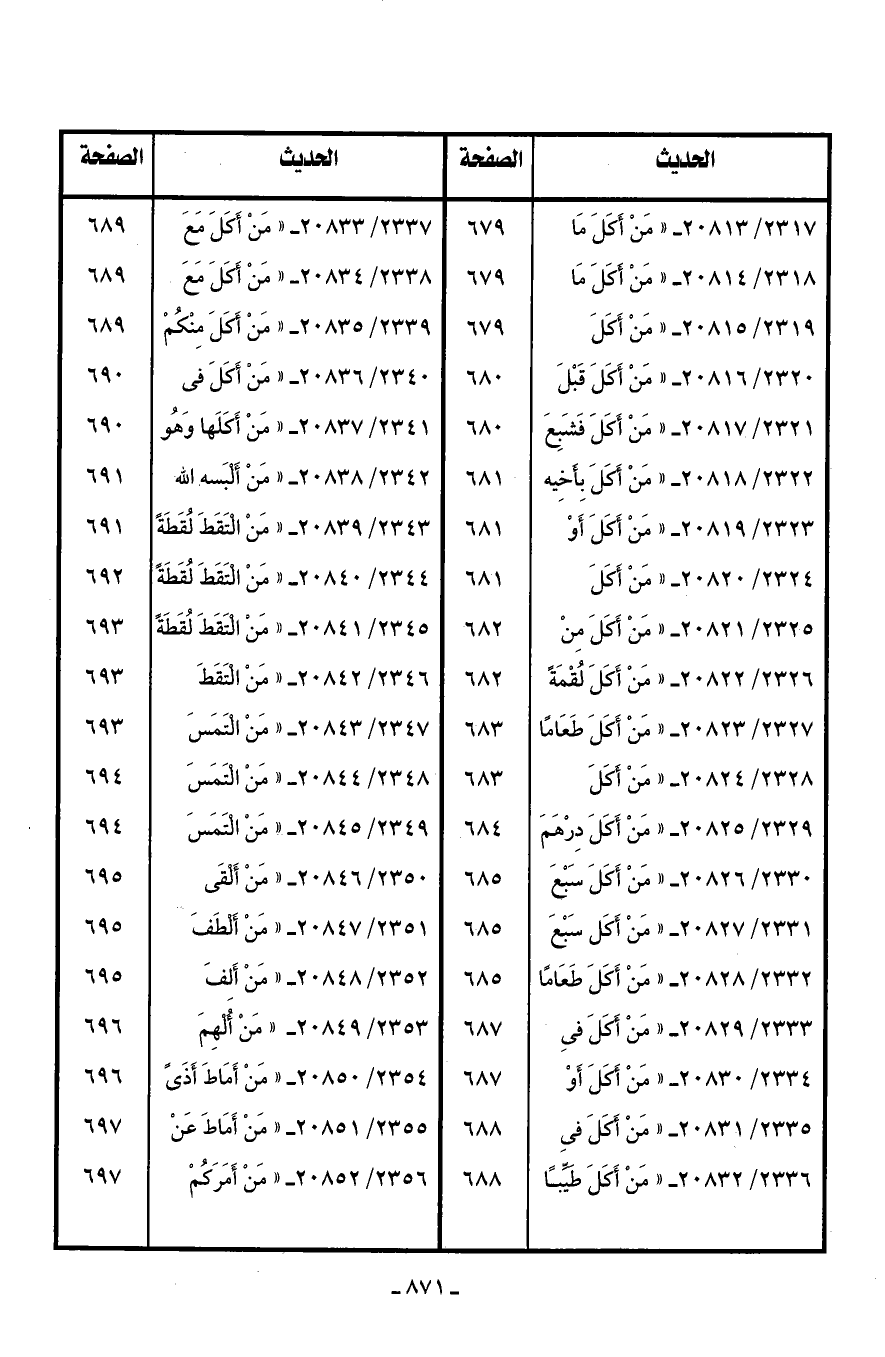 الحديث الصفحة الحديث الصفحة
٢٣١٧/ ٢٠٨١٣ـ « مَنْ أَكَلَ مَا ٦٧٩ ٢٣٣٧/ ٢٠٨٣٣ـ « مَنْ أَكَلَ مَعَ ٦٨٩
٢٣١٨/ ٢٠٨١٤ـ « مَنْ أَكَلَ مَا ٦٧٩ ٢٣٣٨/ ٢٠٨٣٤ـ « مَنْ أَكَلَ مَعَ ٦٨٩
٢٣١٩/ ٢٠٨١٥ـ « مَنْ أَكَلَ ٦٧٩ ٢٣٣٩/ ٢٠٨٣٥ـ « مَنْ أَكَلَ مِنْكُمْ ٦٨٩
٢٣٢٠/ ٢٠٨١٦ـ « مَنْ أَكَلَ قَبْلَ ٦٨٠ ٢٣٤٠/ ٢٠٨٣٦ـ « مَنْ أَكَلَ فى ٦٩٠
٢٣٢١/ ٢٠٨١٧ـ « مَنْ أَكَلَ فَشَبِعَ ٦٨٠ ٢٣٤١/ ٢٠٨٣٧ـ « مَنْ أَكَلَها وَهُو ٦٩٠
٢٣٢٢/ ٢٠٨١٨ـ « مَنْ أَكَلَ بِأَخِيه ٦٨١ ٢٣٤٢/ ٢٠٨٣٨ـ « مَنْ أَلْبَسه الله ٦٩١
٢٣٢٣/ ٢٠٨١٩ـ « مَنْ أَكَلَ أَوْ ٦٨١ ٢٣٤٣/ ٢٠٨٣٩ـ « مَنْ الْتَقَطَ لُقَطَةً ٦٩١
٢٣٢٤/ ٢٠٨٢٠ـ « مَنْ أَكَلَ ٦٨١ ٢٣٤٤/ ٢٠٨٤٠ـ « مَنْ الْتَقَطَ لُقَطَةً ٦٩٢
٢٣٢٥/ ٢٠٨٢١ـ « مَنْ أَكَلَ مِنْ ٦٨٢ ٢٣٤٥/ ٢٠٨٤١ـ « مَنْ الْتَقَطَ لُقَطَةً ٦٩٣
٢٣٢٦/ ٢٠٨٢٢ـ « مَنْ أَكَلَ لُقْمَةً ٦٨٢ ٢٣٤٦/ ٢٠٨٤٢ـ « مَنْ الْتَقَطَ ٦٩٣
٢٣٢٧/ ٢٠٨٢٣ـ « مَنْ أَكَلَ طَعَامًا ٦٨٣ ٢٣٤٧/ ٢٠٨٤٣ـ « مَنْ الْتَمَسَ ٦٩٣
٢٣٢٨/ ٢٠٨٢٤ـ « مَنْ أَكَلَ ٦٨٣ ٢٣٤٨/ ٢٠٨٤٤ـ « مَنْ الْتَمَسَ ٦٩٤
٢٣٢٩/ ٢٠٨٢٥ـ « مَنْ أَكَلَ دِرْهَمَ ٦٨٤ ٢٣٤٩/ ٢٠٨٤٥ـ « مَنْ الْتَمَسَ ٦٩٤
٢٣٣٠/ ٢٠٨٢٦ـ « مَنْ أَكَلَ سَبْعَ ٦٨٥ ٢٣٥٠/ ٢٠٨٤٦ـ « مَنْ أَلْقَى ٦٩٥
٢٣٣١/ ٢٠٨٢٧ـ « مَنْ أَكَلَ سَبْعَ ٦٨٥ ٢٣٥١/ ٢٠٨٤٧ـ « مَنْ أَلْطَفَ ٦٩٥
٢٣٣٢/ ٢٠٨٢٨ـ « مَنْ أَكَلَ طَعَامًا ٦٨٥ ٢٣٥٢/ ٢٠٨٤٨ـ « مَنْ أَلِفَ ٦٩٥
٢٣٣٣/ ٢٠٨٢٩ـ « مَنْ أَكَلَ فى ٦٨٧ ٢٣٥٣/ ٢٠٨٤٩ـ « مَنْ أُلْهِمَ ٦٩٦
٢٣٣٤/ ٢٠٨٣٠ـ « مَنْ أَكَلَ أَوْ ٦٨٧ ٢٣٥٤/ ٢٠٨٥٠ـ « مَنْ أَمَاطَ أَذَىً ٦٩٦
٢٣٣٥/ ٢٠٨٣١ـ « مَنْ أَكَلَ فى ٦٨٨ ٢٣٥٥/ ٢٠٨٥١ـ « مَنْ أَمَاطَ عَنْ ٦٩٧
٢٣٣٦/ ٢٠٨٣٢ـ « مَنْ أَكَلَ طَيِّبًا ٦٨٨ ٢٣٥٦/ ٢٠٨٥٢ـ « مَنْ أَمَرَكُمْ ٦٩٧
ـ ٨٧١ ـ